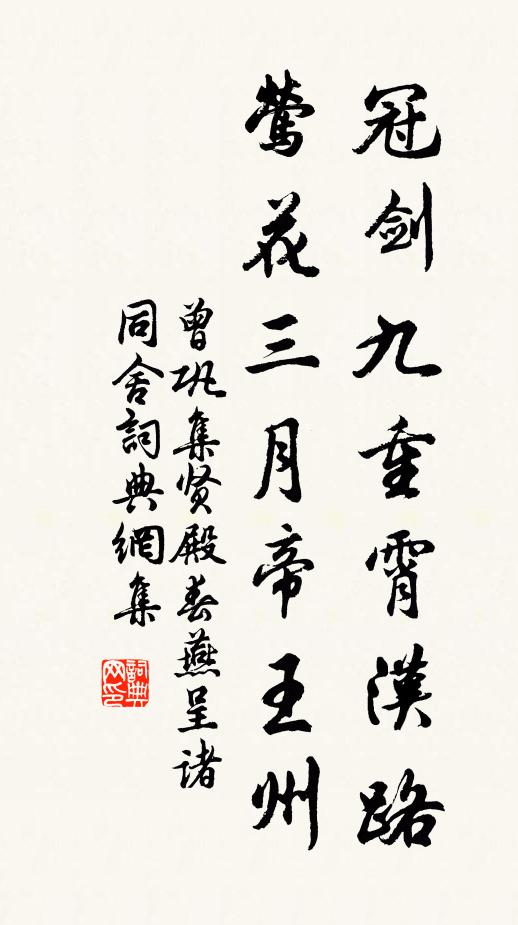 冠劍九重霄漢路
鶯花三月帝王州
曾巩集贤殿春燕呈諸
同舍詞典網集
詞典網印